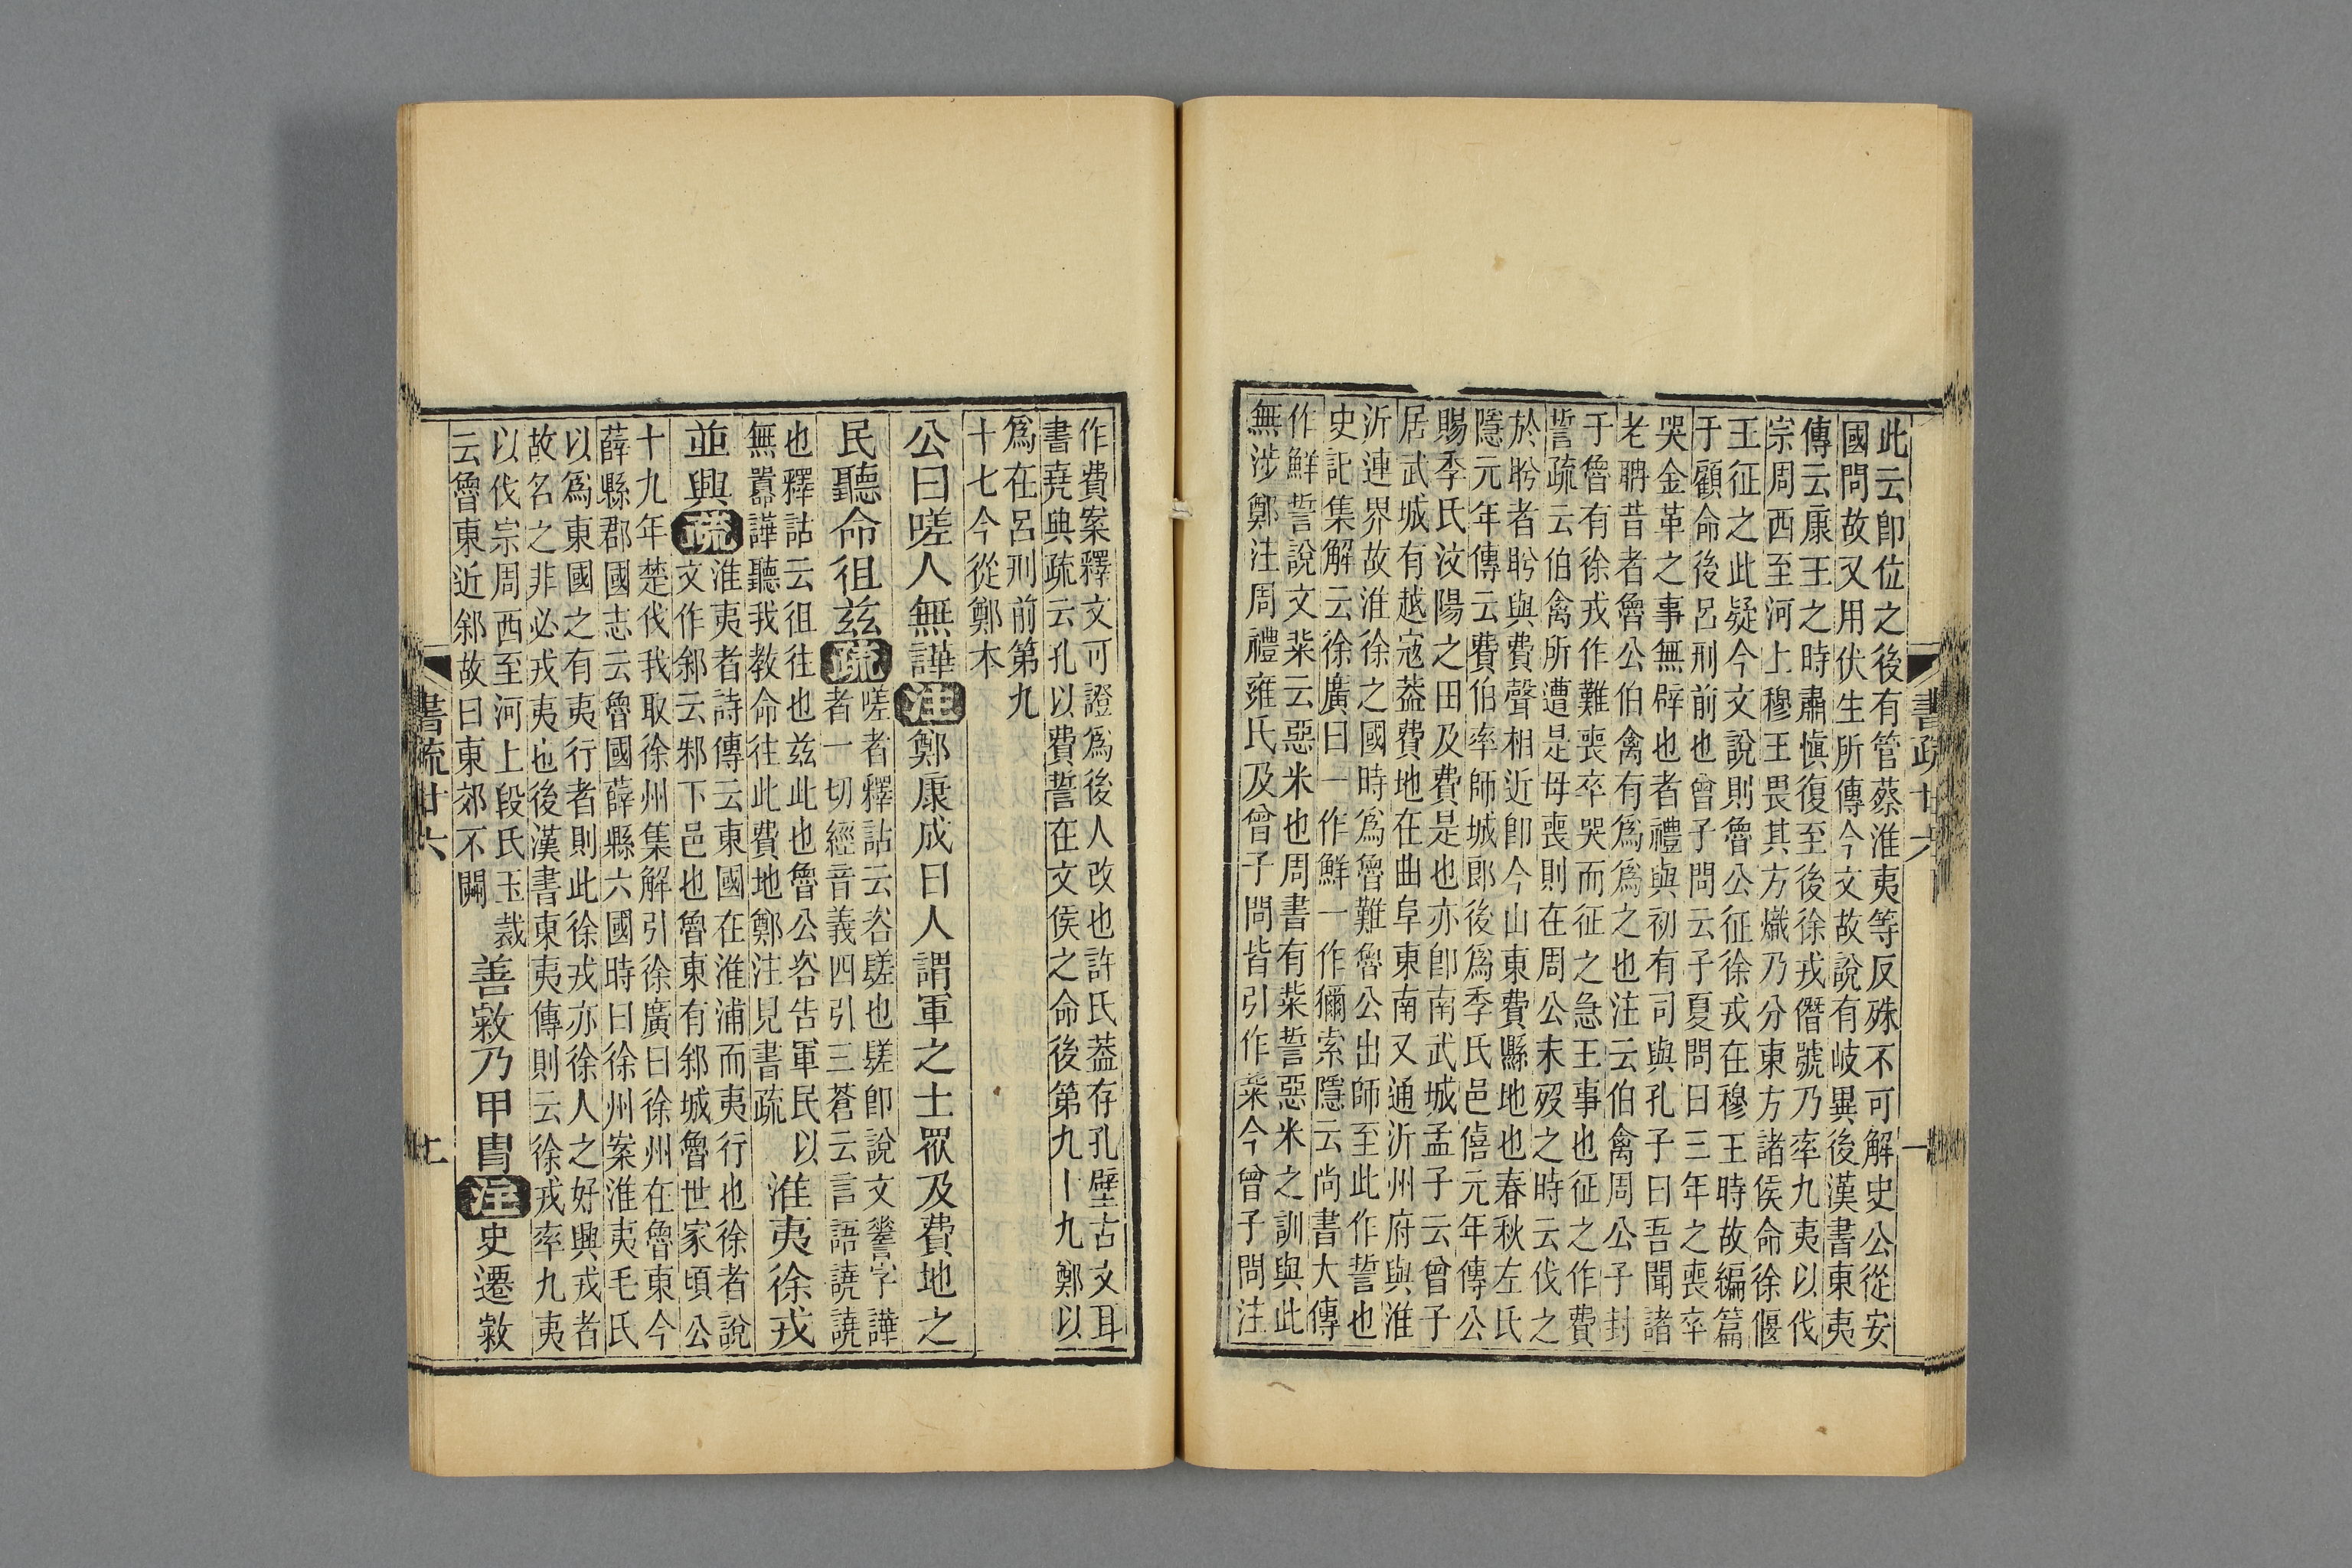 此云卽位之後有管蔡淮夷等反殊不可解史公從安
國問故又用伏生所傳今文故說有岐異後漢書東夷
傳云康王之時肅愼復至後徐戎僭號乃率九夷以伐
宗周西至河上穆王畏其方熾乃分東方諸侯命徐偃
王征之此疑今文說則魯公征徐戎在穆王時故編篇
于顧命後呂刑前也曾子問云子夏問曰三年之喪卒
哭金革之事無辟也者禮與初有司與孔子曰吾聞諸
老聃昔者魯公伯禽有爲爲之也注云伯禽周公子封
于魯有徐戎作難喪卒哭而征之急王事也征之作費
誓疏云伯禽所遭是母喪則在周公未歿之時云伐之
於肹者肹與費聲相近卽今山東費縣地也春秋左氏
隱元年傳云費伯率師城郎後爲季氏邑僖元年傳公
賜季氏汶陽之田及費是也亦卽南武城孟子云曾子
居武城有越寇葢費地在曲阜東南又通沂州府與淮
沂連界故淮徐之國時爲魯難魯公出師至此作誓也
史記集解云徐廣曰一作鮮一作獮索隱云尚書大傳
作鮮誓說文粊云惡米也周書有粊誓惡米之訓與此
無涉鄭注周禮雍氏及曾子問皆引作粊今曾子問注
書疏廿六
一
作費案釋文可證爲後人改也許氏葢存孔壁古文耳
書堯典疏云孔以費誓在文侯之命後第九十九鄭以
爲在呂刑前第九
十七今從鄭本
公曰嗟人無譁注鄭康成曰人謂軍之士眾及費地之
民聽命徂兹疏嗟者釋詁云咨㜘也㜘卽說文䜅字譁
者一切經音義四引三蒼云言語譊譊
也釋詁云徂往也兹此也魯公咨告軍民以
無囂譁聽我教命往此費地鄭注見書疏
淮夷徐戎
並興疏淮夷者詩傳云東國在淮浦而夷行也徐者說
文作䣄云邾下邑也魯東有䣄城魯世家頃公
十九年楚伐我取徐州集解引徐廣曰徐州在魯東今
薛縣郡國志云魯國薛縣六國時曰徐州案淮夷毛氏
以爲東國之有夷行者則此徐戎亦徐人之好興戎者
故名之非必戎夷也後漢書東夷傳則云徐戎率九夷
以伐宗周西至河上段氏玉裁
云魯東近䣄故曰東郊不闢
善敹乃甲冑注史遷敹
書疏廿六